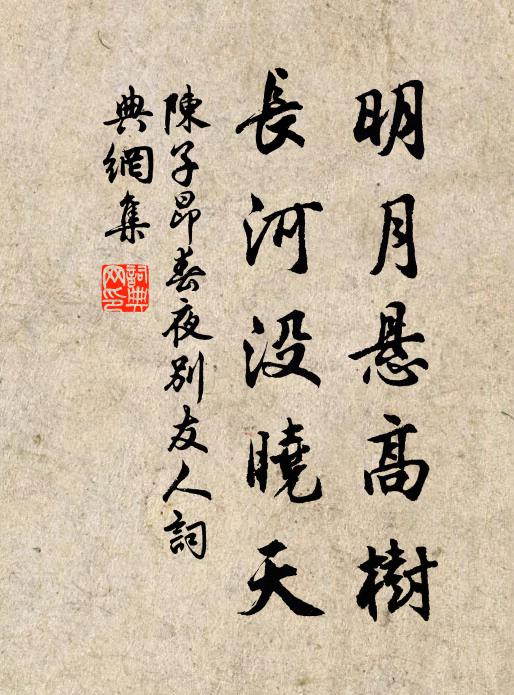 明月悬高樹
長河没曉天
陳子昂春夜别友人詞
典網集
詞典
网印